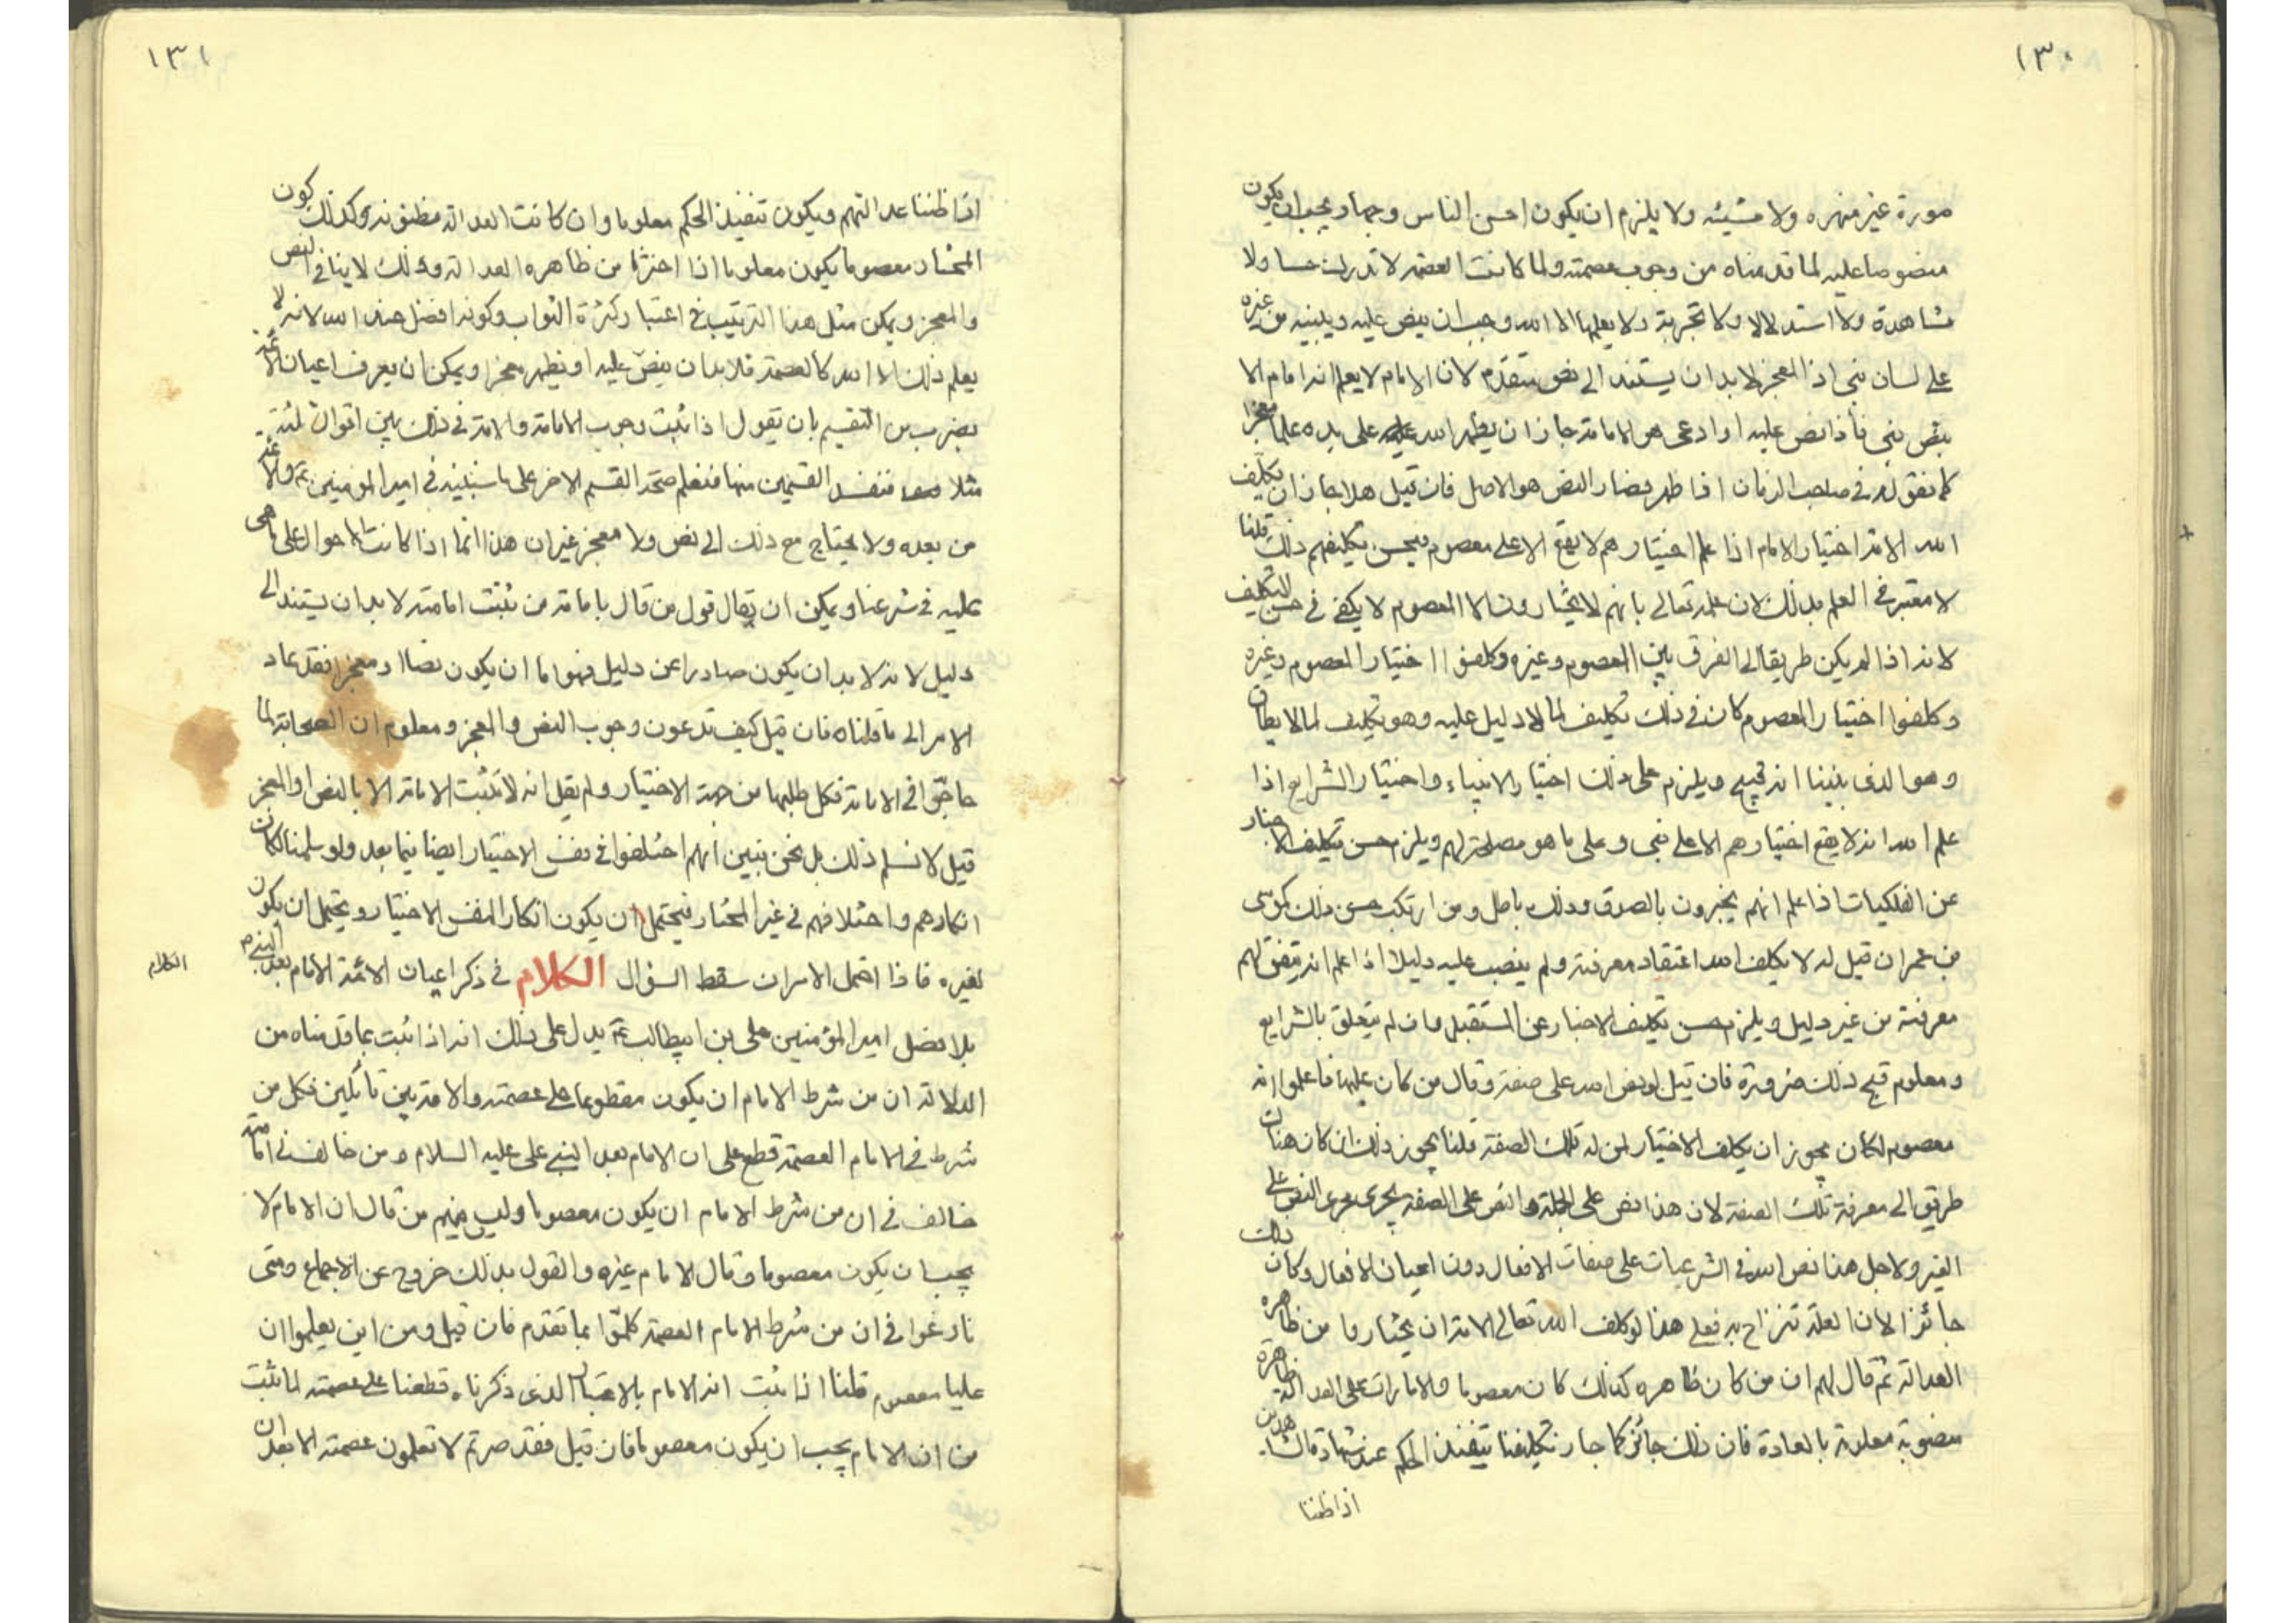 ١٣٠
صورة غير منفره ولا مشينه ولا يلزم ان يكون احسن الناس وجها ويجب ان يكون
منصوصا عليه لما قدمناه من وجوب عصمته ولما كانت العصمة لا تدرك حسا ولا
مشاهدة ولا استدلالا ولا تجربة ولا يعلمها الا الله وجب ان ينص عليه ويبينه من غيره
على لسان نبي اذ المعجز لا بد ان يستند الى نص متقدم لان الامام لا يعلم انه امام الا
بنص نبي فاذا نص عليه او ادعى هو الامامة جاز ان يظهر الله على يده علما معجزا
كما نقوله في صاحب الزمان اذا ظهر فصار النص هو الاصل فان قيل هلا جاز ان يكلف
الله الامة اختيار الامام اذا علم اختيارهم لا يقع الا على معصوم فيحسن تكليفهم ذلك قلنا
لا معتبر في العلم بذلك لان علمه تعالى بانهم لا يختارون الا المعصوم لا يكفي في حسن التكليف
لانه اذا لم يكن طريقا الى الفرق بين المعصوم وغيره وكلفوا اختيار المعصوم وغيره
وكلفوا اختيار المعصوم كان في ذلك تكليف لما لا دليل عليه وهو تكليف لما لا يطاق
وهو الذي بينا انه قبيح ويلزم على ذلك اختيار الانبياء واختيار الشرايع اذا
علم الله انه لا يقع اختيارهم الا على نبي وعلى ما هو مصلحة لهم ويلزم حسن تكليف الاخبار
عن الفلكيات اذا علم انهم يخبرون بالصدق وذلك باطل ومن ارتكب حسن ذلك كموسى
بن عمران قيل له لا يكلف الله اعتقاد معرفته ولم ينصب عليه دليلا اذا علم انه يتفق لهم
معرفته من غير دليل ويلزم حسن تكليف الاخبار عن المستقبل وان لم يتعلق بالشرايع
ومعلوم قبح ذلك ضرورة فان قيل لو نص الله على صفة وقال من كان عليها فاعلموا انه
معصوم لكان يجوز ان يكلف الاختيار لمن له تلك الصفة قلنا يجوز ذلك ان كان هناك
طريق الى معرفة تلك الصفة لان هذا نص على الجملة والنص على الصفة يجري مجرى النص على
العين ولاجل هذا نص الله في الشرعيات على صفات الافعال دون اعيان الافعال وكان ذلك
جائزا لان العلة تنزاح به فعلى هذا لو كلف الله تعالى الامة ان يختاروا من ظاهره
العدالة ثم قال لهم ان من كان ظاهره كذلك كان معصوما والامارات على العدالة ظاهرة
منصوبة معلومة بالعادة فان ذلك جائز كما جاز تكليفنا تنفيذ الحكم عند شهادة الشاهدين
اذا ظننا
١٣١
اذا ظننا عدالتهم ويكون تنفيذ الحكم معلوما وان كانت العدالة مظنونه وكذلك كون
المختار معصوما يكون معلوما اذا اخترنا من ظاهره العدالة وذلك لا ينافي النص
والمعجز ويمكن مثل هذا الترتيب في اعتبار كثرة الثواب وكونه افضل عند الله لانه لا
يعلم ذلك الا الله كالعصمة فلا بد ان ينص عليه او يظهر معجزا ويمكن ان يعرف اعيان الائمة
بضرب من التقسيم بان تقول اذا ثبت وجوب الامامة والامة في ذلك بين اقوال ثلثة
مثلا فنفسد القسمين منها فنعلم صحة القسم الاخر على ما سنبينه في امير المؤمنين ع والائمة
من بعده ولا يحتاج مع ذلك الى نص ولا معجز غير ان هذا انما اذا كانت الاحوال على ما هي
عليه في شرعنا ويمكن ان يقال قول من قال بامامة من يثبت امامته لا بد ان يستند الى
دليل لانه لا بد ان يكون صادرا عن دليل فهو اما ان يكون نصا او معجزا فقد عاد
الامر الى ما قلناه فان قيل كيف تدعون وجوب النص والمعجز ومعلوم ان الصحابة لما
حاجوا في الامامة فكل طلبها من جهة الاختيار ولم يقل انه لا تثبت الامامة الا بالنص او المعجز
قيل لا نسلم ذلك بل نحن نبين انهم اختلفوا في نفس الاختيار ايضا فيما بعد ولو سلمنا لكان
انكارهم واختلافهم في غير المختار فيحتمل ان يكون انكارا لنفس الاختيار ويحتمل ان يكون
لغيره فاذا احتمل الامران سقط السؤال الكلام في ذكر اعيان الائمة الامام بعد النبي ص
الكلام
بلا فضل امير المؤمنين علي بن ابيطالب ع يدل على ذلك انه اذا ثبت بما قدمناه من
الدلالة ان من شرط الامام ان يكون مقطوعا على عصمته والامة بين قائلين فكل من
شرط في الامام العصمة قطع على ان الامام بعد النبي علي عليه السلام ومن خالف في امامته
خالف في ان من شرط الامام ان يكون معصوما وليس فيهم من قال ان الامام لا
يجب ان يكون معصوما وقال الامام غيره والقول بذلك خروج عن الاجماع ومتى
نازعوا في ان من شرط الامام العصمة كلموا بما تقدم فان قيل ومن اين يعلموا ان
عليا معصوم قلنا اذا ثبت انه الامام بالاعتبار الذي ذكرناه قطعنا على عصمته لما ثبت
من ان الامام يجب ان يكون معصوما فان قيل فقد صرتم لا تعلمون عصمته الا بعد ان